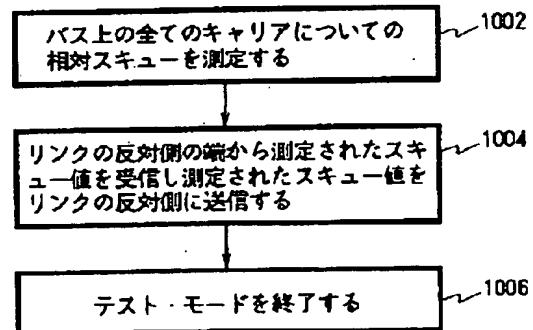 バス上の全てのキャリアについての
相対スキューを測定する
1002
リンクの反対側の端から測定されたスキ
ュー値を受信し測定されたスキュー値を
リンクの反対側に送信する
1004
テスト・モードを終了する
1006